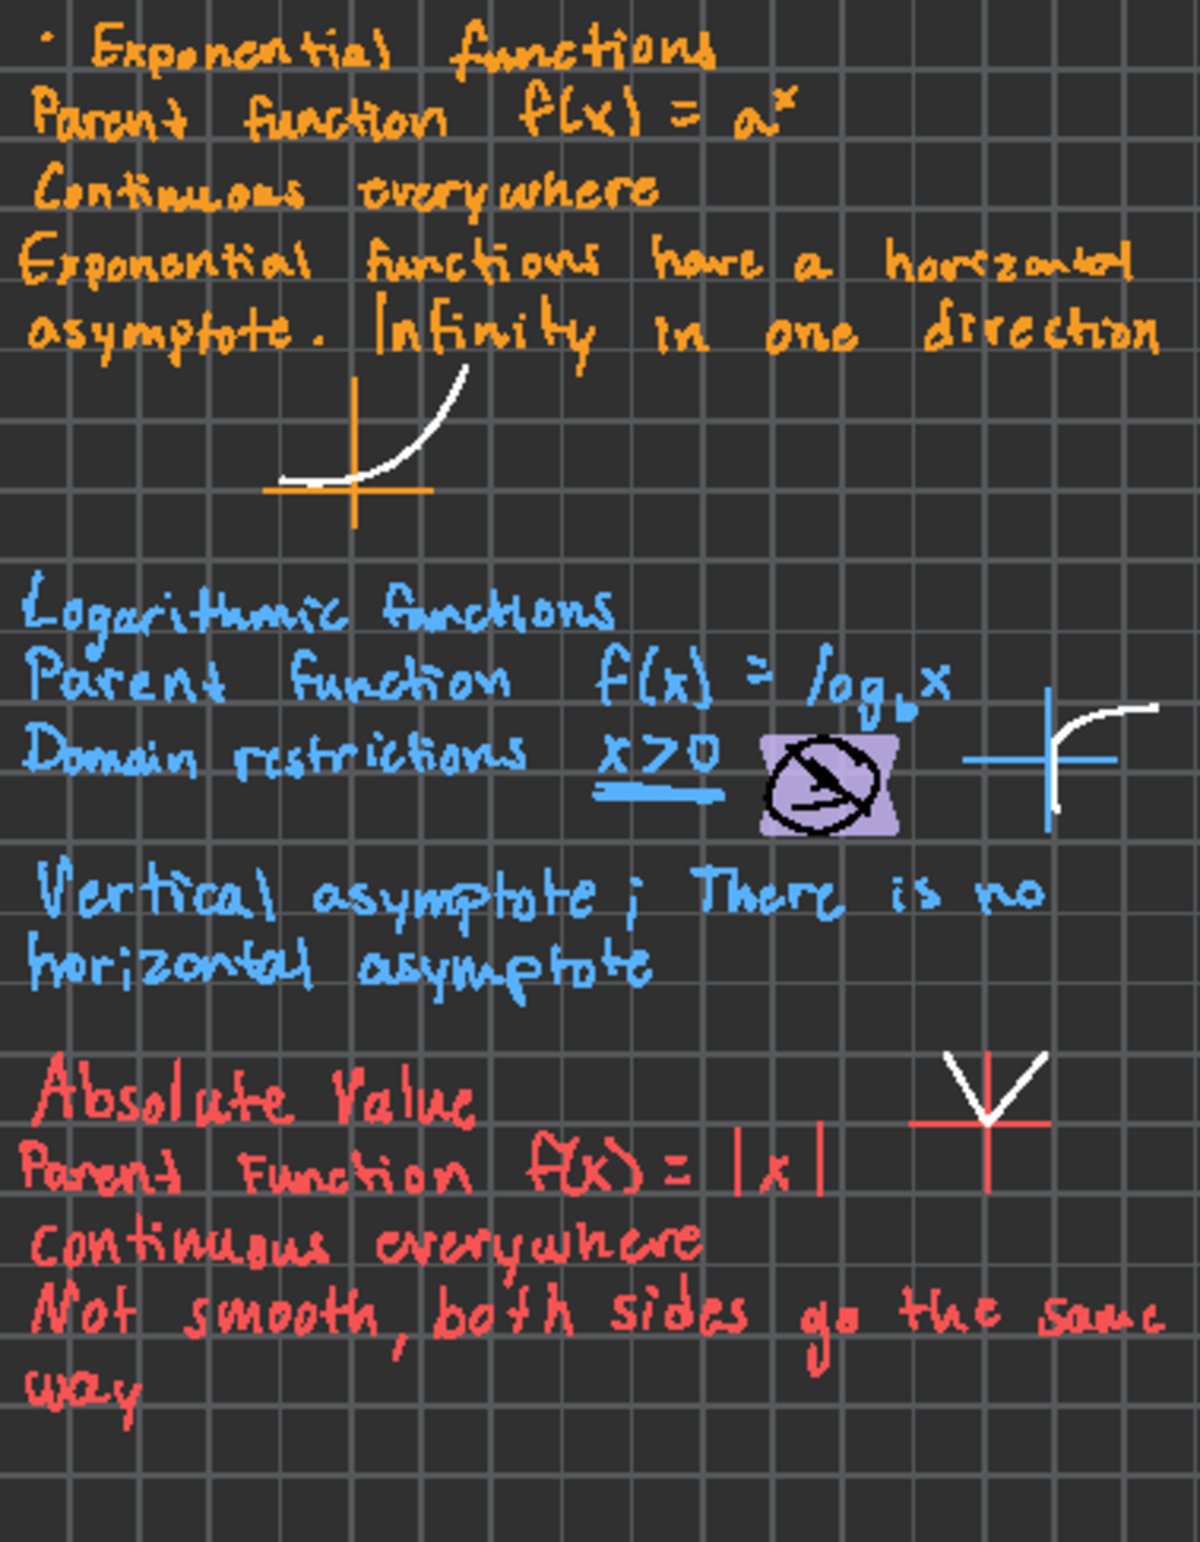 · Exponential functions
Parent function f(x) = a^x
Continuous everywhere
Exponential functions have a horizontal
asymptote. Infinity in one direction
Logarithmic functions
Parent function f(x) = log_b x
Domain restrictions x>0 ≥
Vertical asymptote; There is no
horizontal asymptote
Absolute Value
Parent Function f(x) = |x|
Continuous everywhere
Not smooth, both sides go the same
way